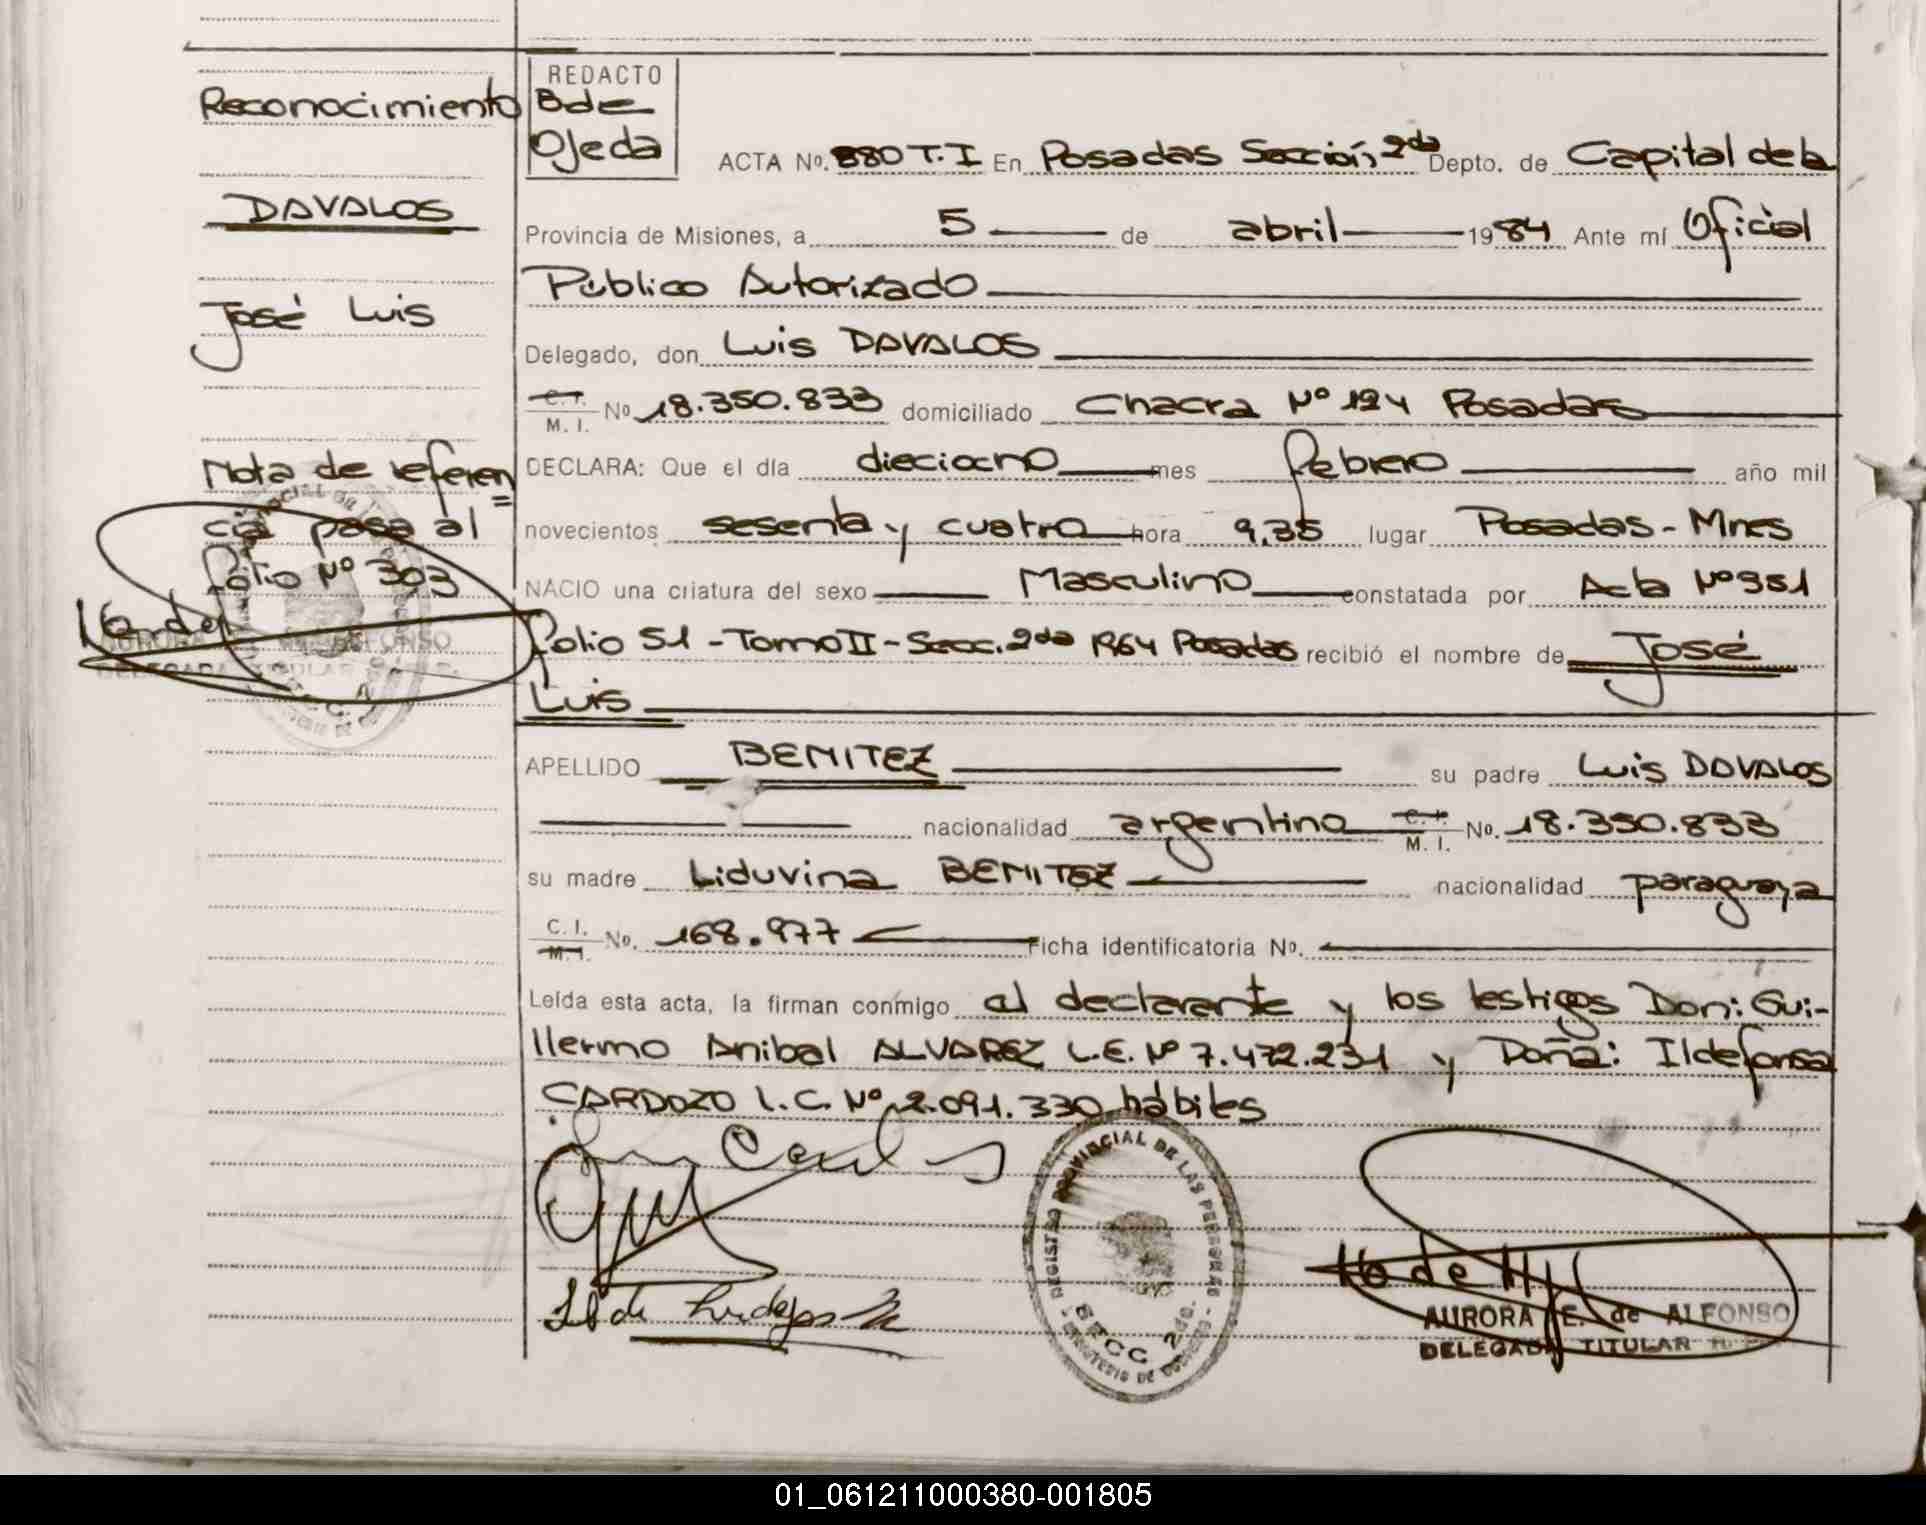 Reconocimiento
DAVALOS
José Luis
Nota de referen=
cia pasa al
Folio Nº 303
REDACTO
B de
Ojeda
ACTA Nº. 880 T.I En Posadas Sección 2da Depto. de Capital de la
Provincia de Misiones, a 5 de abril 1984 Ante mí Oficial
Público Autorizado
Delegado, don Luis DAVALOS
C.I. M. I. No 18.350.833 domiciliado Chacra Nº 124 Posadas
DECLARA: Que el día dieciocho mes febrero año mil
novecientos sesenta y cuatro hora 9,35 lugar Posadas - Mnes
NACIO una criatura del sexo Masculino constatada por Acta Nº 351
Folio 51 - Tomo II - Secc. 2da 1964 Posadas recibió el nombre de José
Luis
APELLIDO BENITEZ su padre Luis DAVALOS
nacionalidad argentino C.I. M. I. No. 18.350.833
su madre Liduvina BENITEZ nacionalidad paraguaya
C. I. M.I. No. 168.977 Ficha identificatoria No.
Leída esta acta, la firman conmigo el declarante y los testigos Don: Gui-
llermo Anibal ALVAREZ L.E. Nº 7.472.231 y Doña: Ildefonsa
CARDOZO L.C. Nº 2.091.330 hábiles
REGISTRO PROVINCIAL DE LAS PERSONAS
SECC 2da.
AURORA E. de ALFONSO
DELEGADA TITULAR
01_061211000380-001805